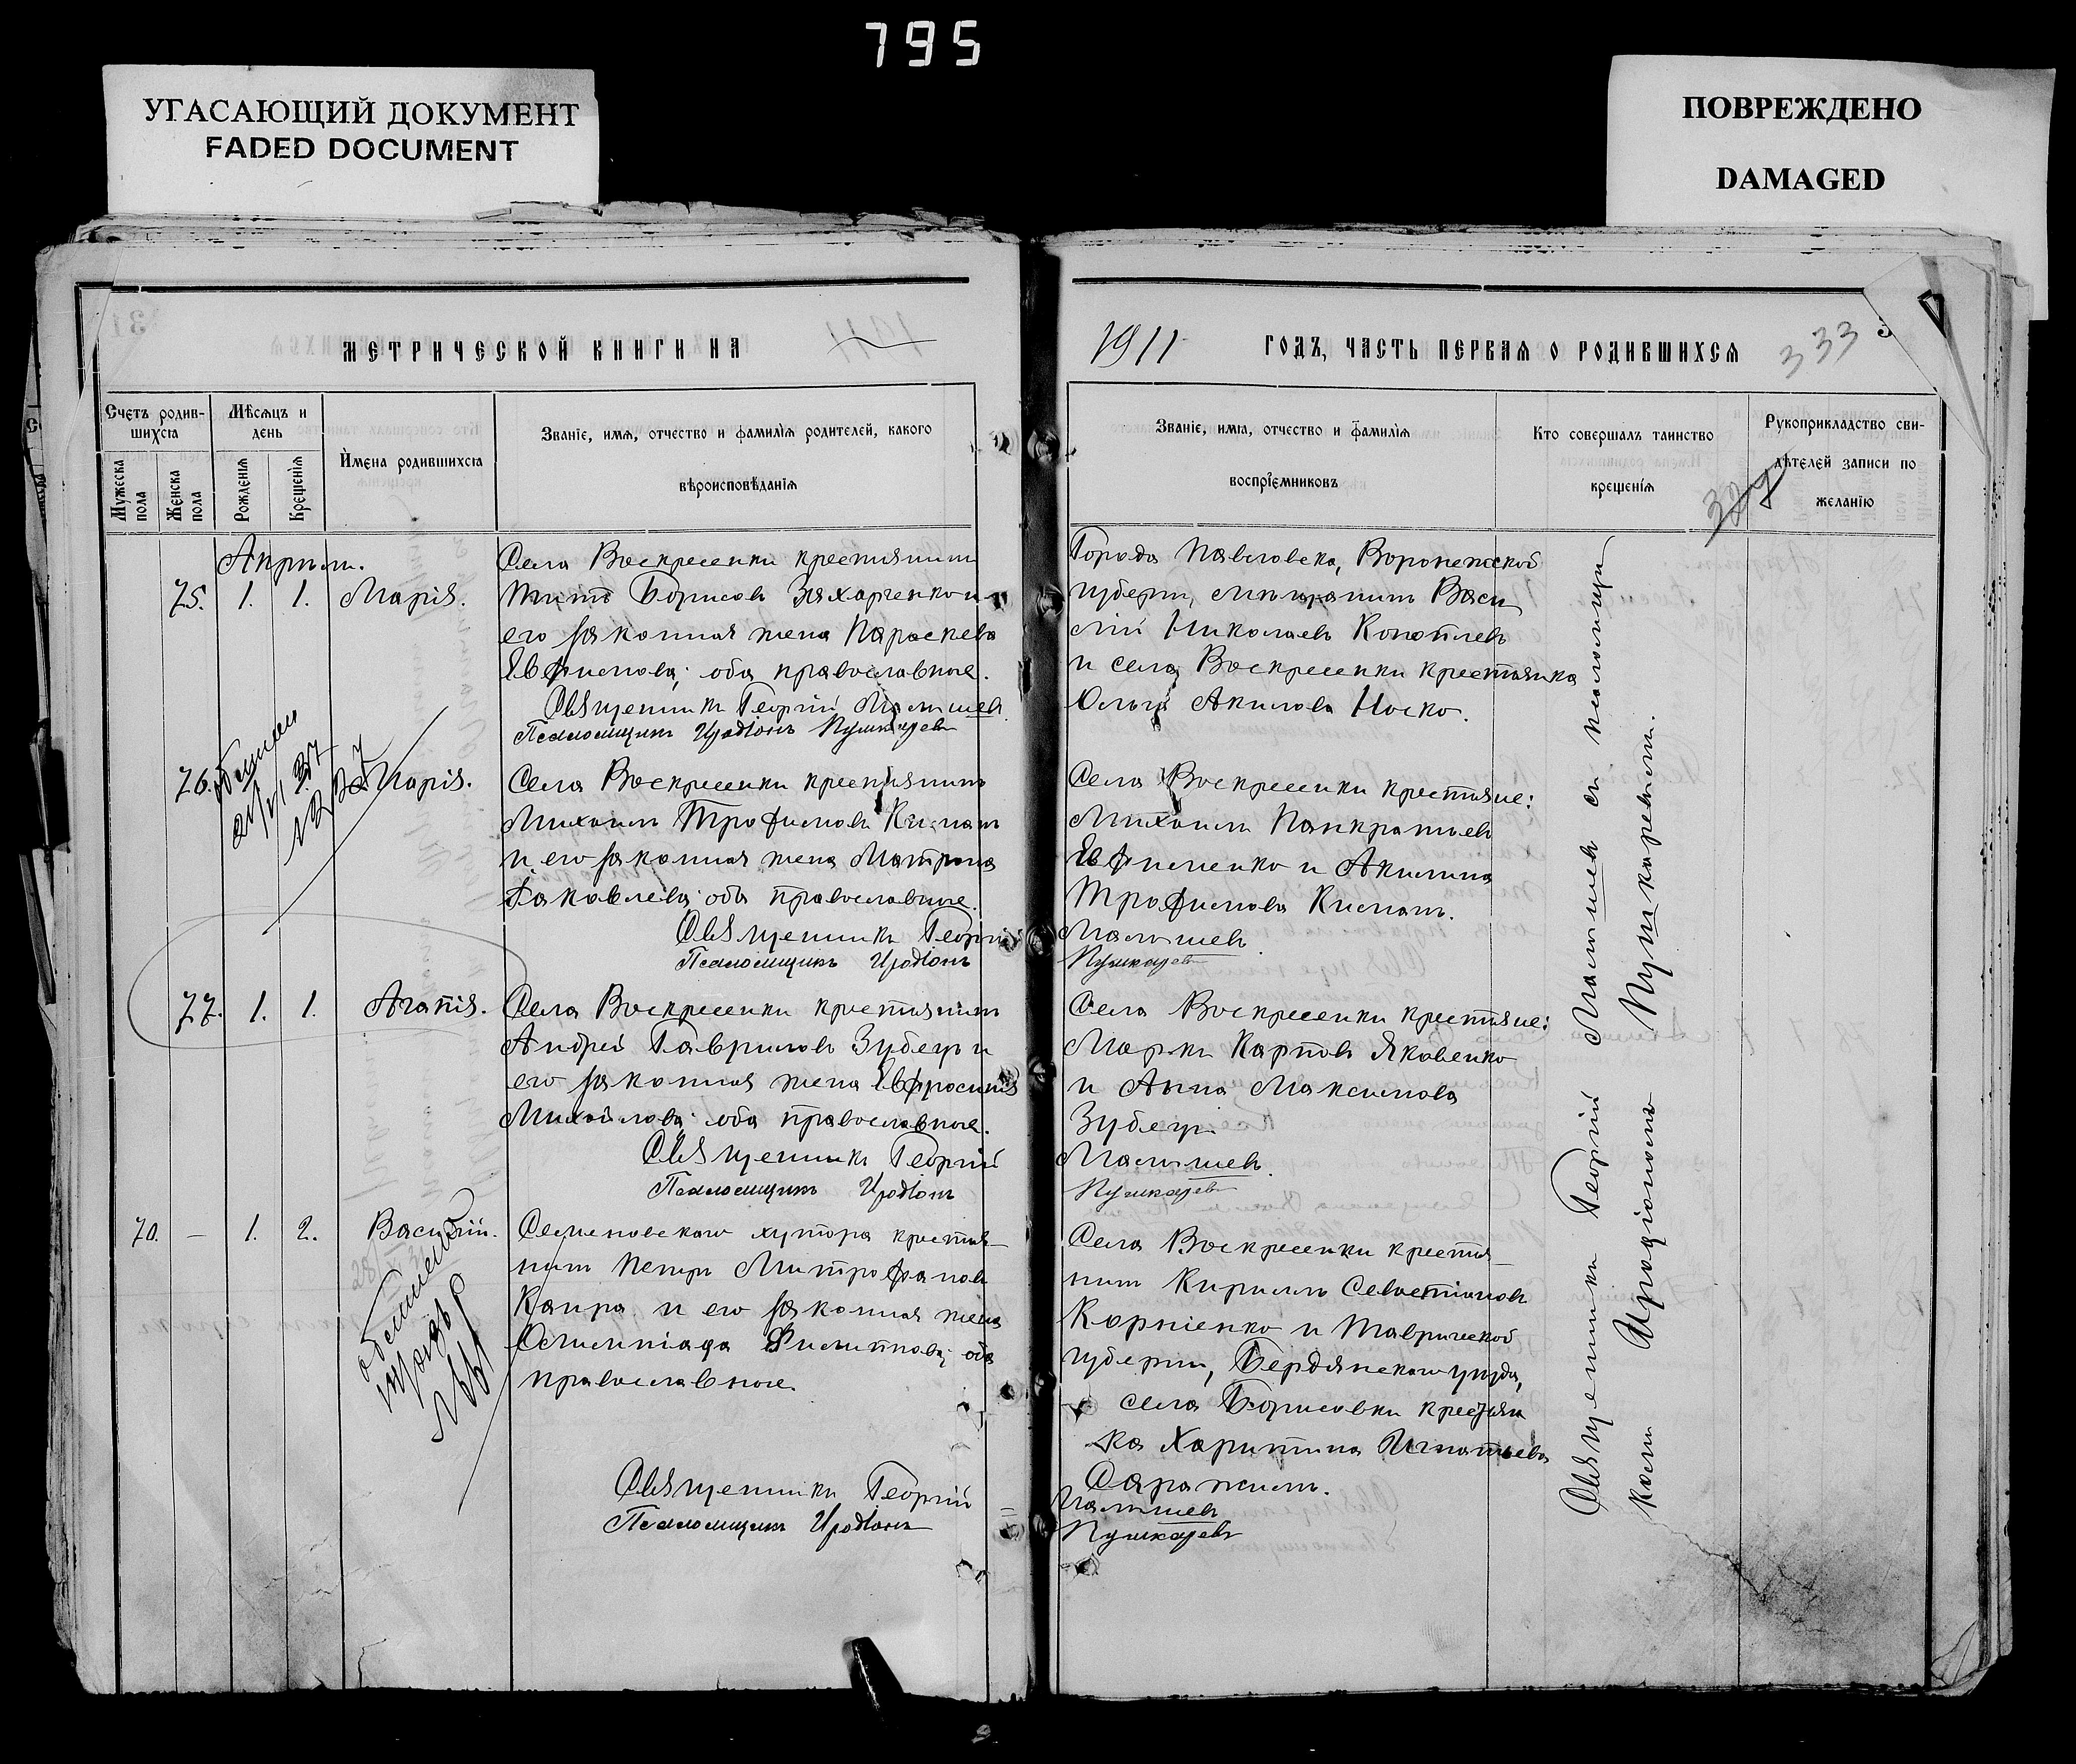 795
УГАСАЮЩИЙ ДОКУМЕНТ
FADED DOCUMENT
ПОВРЕЖДЕНО
DAMAGED
МЕТРИЧЕСКОЙ КНИГИ НА
1911
ГОДЪ, ЧАСТЬ ПЕРВАЯ О РОДИВШИХСЯ
333
Счетъ родив-
шихся
Мѣсяцъ и
день
Мужеска
пола
Женска
пола
Рожденія
Крещенія
Имена родившихся
Званіе, имя, отчество и фамилія родителей, какого
вѣроисповѣданія
Званіе, имя, отчество и фамилія
воспріемниковъ
Кто совершалъ таинство
крещенія
Рукоприкладство сви-
дѣтелей записи по
желанію
327
Апрѣль.
75. 1. 1. Марія.
Села Воскресенки крестьянинъ
Титъ Борисовъ Захарченко и
его законная жена Параскева
Евфимова; оба православные.
Священникъ Георгій Малышевъ.
Псаломщикъ Иродіонъ Пушкаревъ
Города Павловска, Воронежской
губерніи, мѣщанинъ Васи
лій Николаевъ Коноплевъ
и села Воскресенки крестьянка
Ольга Акимова Носко.
76. Марія.
Села Воскресенки крестьянинъ
Михаилъ Трофимовъ Кислый
и его законная жена Матрона
Іаковлева; оба православные.
Священникъ Георгій
Псаломщикъ Иродіонъ
Села Воскресенки крестьяне:
Михаилъ Панкратьевъ
Евфименко и Акилина
Трофимова Кислый.
Малышевъ.
Пушкаревъ
77. 1. 1. Агапія.
Села Воскресенки крестьянинъ
Андрей Гавриловъ Зубецъ и
его законная жена Евфросинія
Михайлова; оба православные.
Священникъ Георгій
Псаломщикъ Иродіонъ
Села Воскресенки крестьяне:
Маркъ Карповъ Яковенко
и Анна Максимова
Зубецъ.
Малышевъ.
Пушкаревъ
70. — 1. 2. Василій.
Семеновскаго хутора крестья-
нинъ Петръ Митрофановъ
Каира и его законная жена
Олимпіада Филиппова; оба
православные.
Священникъ Георгій
Псаломщикъ Иродіонъ
Села Воскресенки крестья-
нинъ Кириллъ Севастіановъ
Корніенко и Таврической
губерніи, Бердянскаго уѣзда,
села Борисовки крестьян
ка Харитина Игнатьева
Малышевъ
Пушкаревъ
Священникъ Георгій Малышевъ съ псаломщи
комъ Иродіономъ Пушкаревымъ.